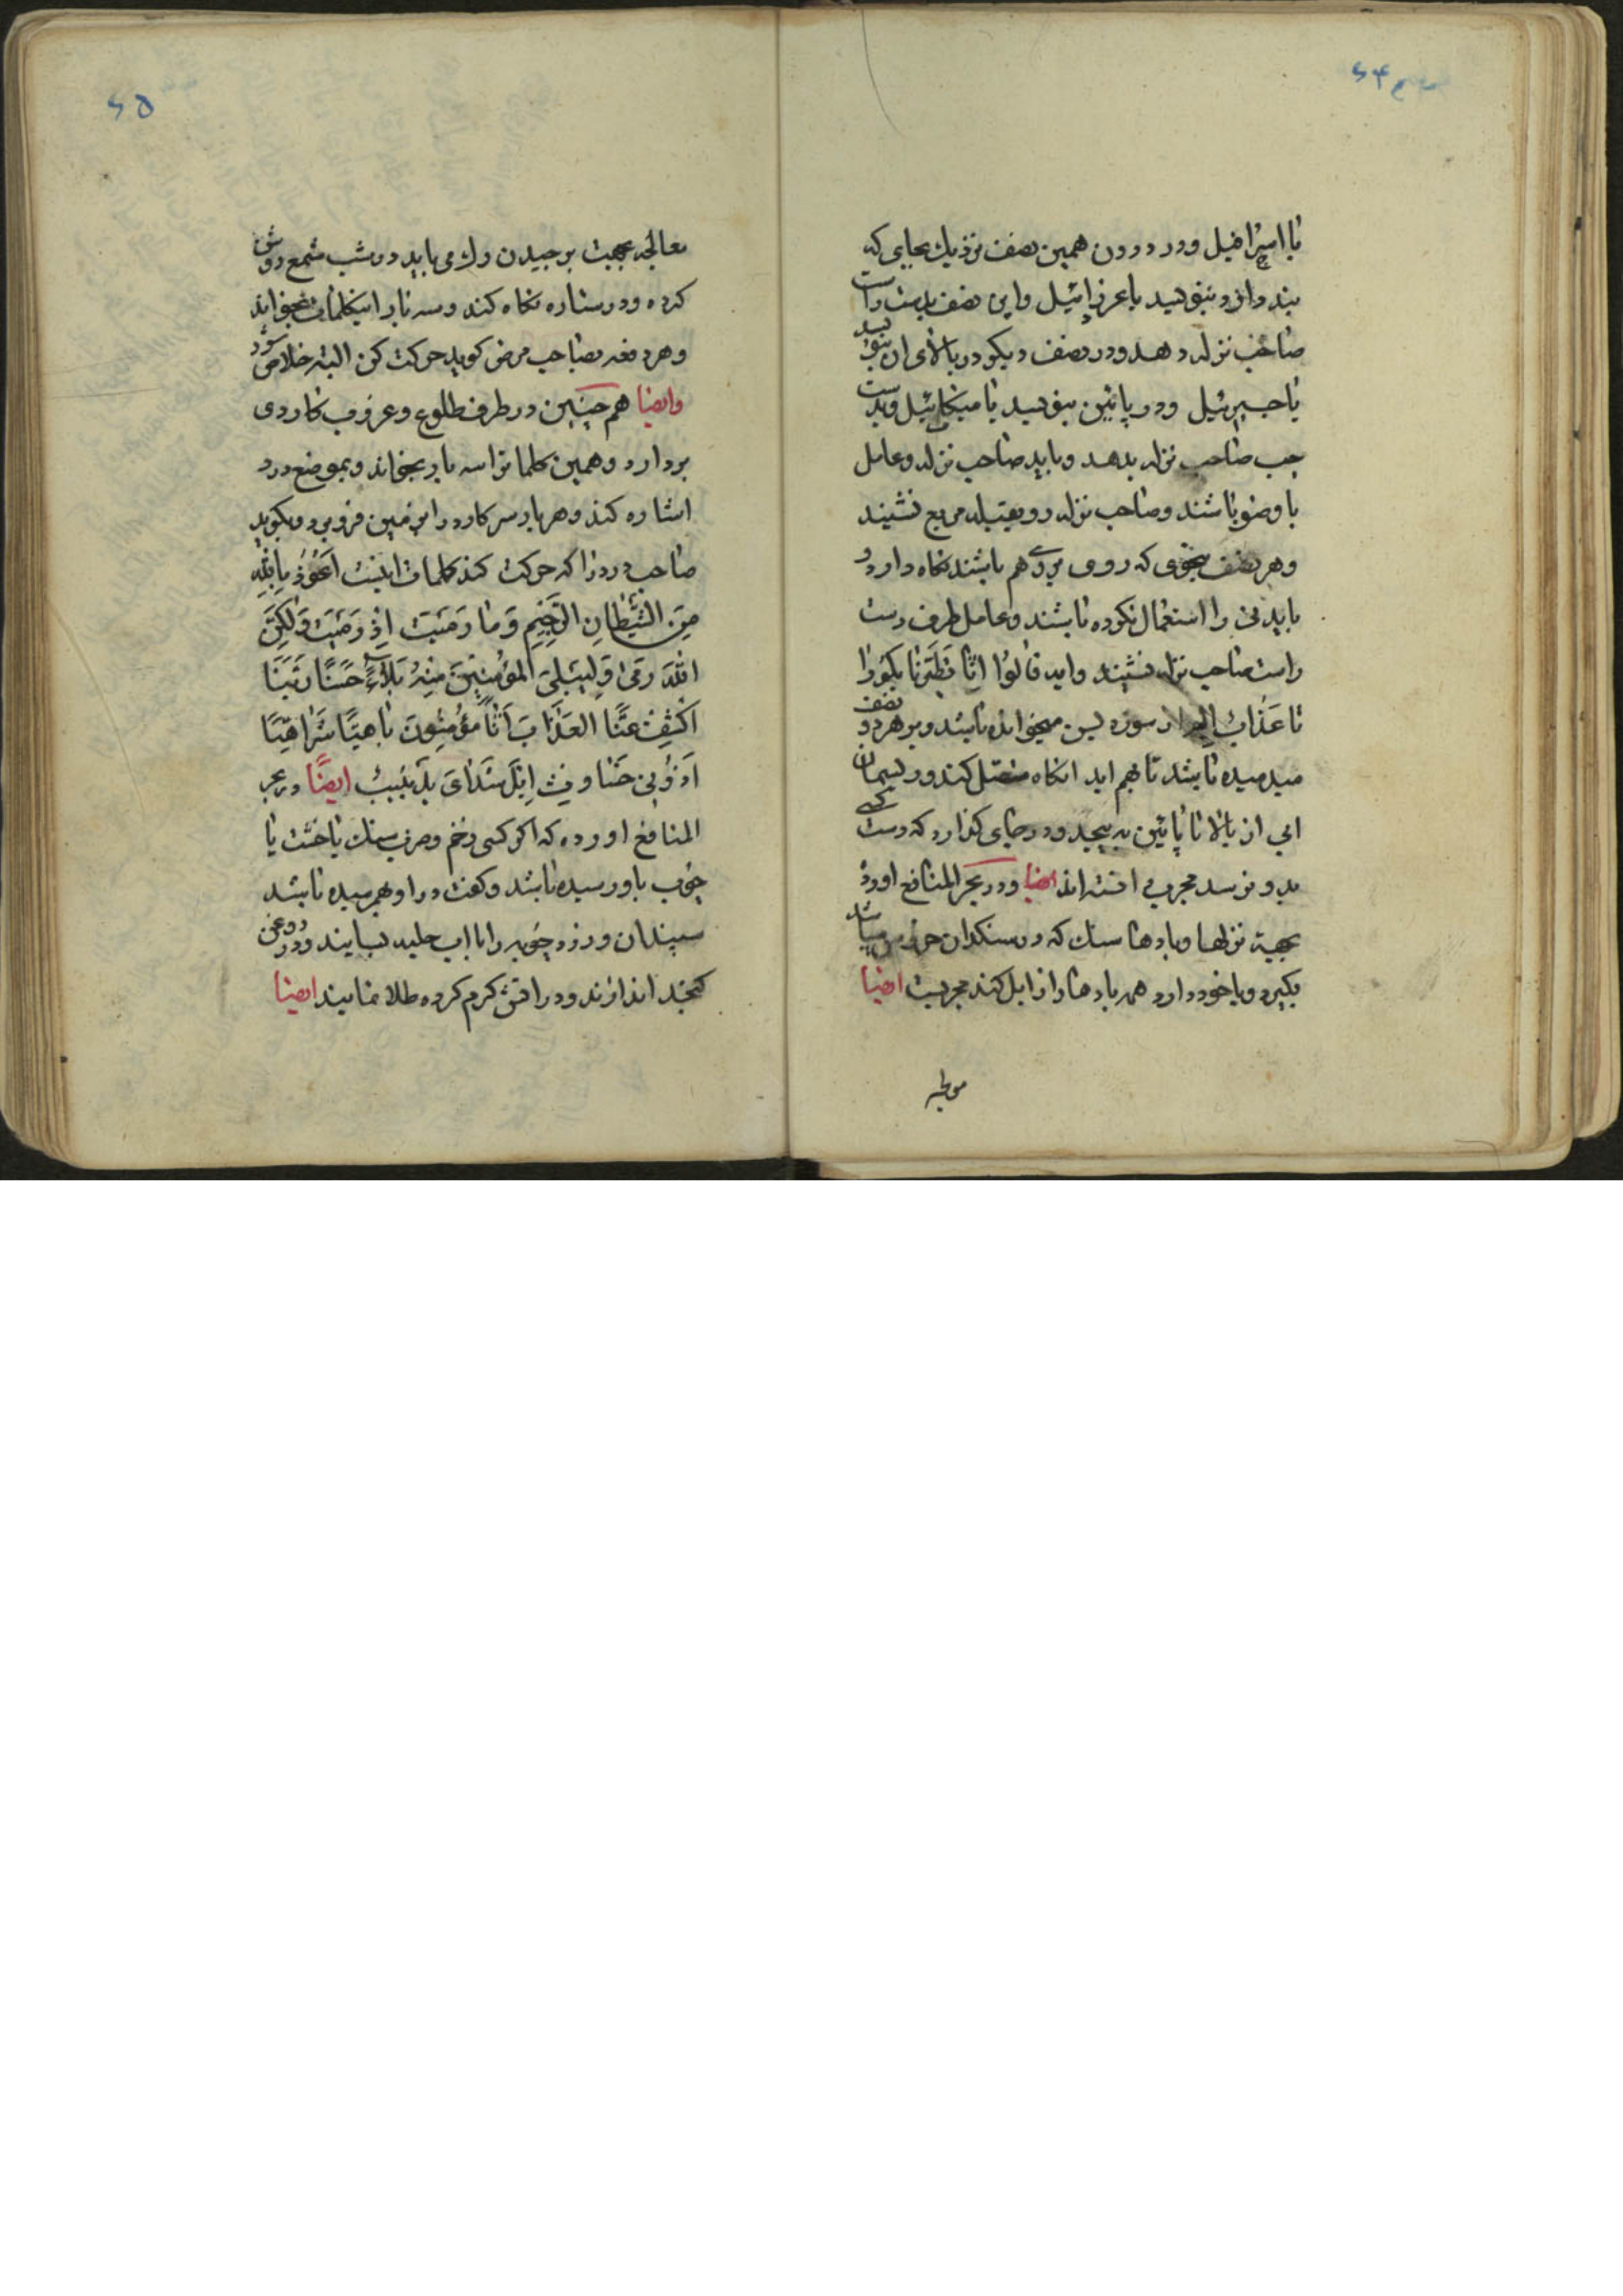 ۶۴
یا اسرافیل و در درون همین نصف نزدیك بجایی که
بند دارد بنویسد یا عزرائیل و این نصف بدست راست
صاحب نزله دهد و در نصف دیکر در بالای ان بنویسد
یا جبرئیل و در پائین بنویسد یا میکائیل و بدست
چب صاحب نزله بدهد و باید صاحب نزله و عامل
با وضو باشند و صاحب نزله رو بقبله مربع نشیند
و هر نصف بنحوی که روی بروی هم باشند نکاه دارد و
باید نی را استعمال نکرده باشند و عامل طرف دست
راست صاحب نزله نشیند و ایه قالُوا اِنّا تَطَیَّرنا بِکُم را
تا عَذابٌ اَلیم از سوره یس میخوانده باشد و بر هر دو نصف
میدمیده باشد تا بهم اید انکاه متصل کند و ریسمان
ابی از بالا تا پائین به پیچد و در جای کذارد که دست کسی
بدو نرسد مجرب یافته اند ایضا و در بحر المنافع اورده
بجهة نزلها و بادها سنك که در سنکدان خروس میباشد
بکیرد و با خود دارد همه بادها را زایل کند مجربست ایضا
۶۵
معالجه بجهت برچیدن رك می باید در شب شمع روشن
کرده و در ستاره نکاه کند و سه بار اینکلمات بخواند
و هر دفعه بصاحب مرض کوید حرکت کن البته خلاص شود
وایضا هم چنین در طرف طلوع و غروب کاردی
بردارد و همین کلمات را سه بار بخواند و بموضع درد
اشاره کند و هر بار سر کارد را بر زمین فرو برد و بکوید
صاحب درد را که حرکت کند کلمات اینست اَعُوذُ بِاللّٰهِ
مِنَ الشَّیْطانِ الرَّجیمِ وَ ما رَمَیْتَ اِذْ رَمَیْتَ وَلٰکِنَّ
اللّٰهَ رَمیٰ وَ لِیُبْلِیَ المُؤمِنینَ مِنْهُ بَلاءً حَسَنًا رَبَّنَا
اکْشِفْ عَنَّا العَذابَ اِنَّا مُؤمِنُونَ یا هیًا شَراهیًا
ایضًا در بحر
المنافع اورده که اکر کسی زخم و ضرب سنك یا خشت یا
چوب باو رسیده باشد و کفت در او بهم رسیده باشد
سپندان و زرد چوبه را با اب حلبه بسایند و در روغن
کنجد اندازند و در اتش کرم کرده طلا نمایند ایضا